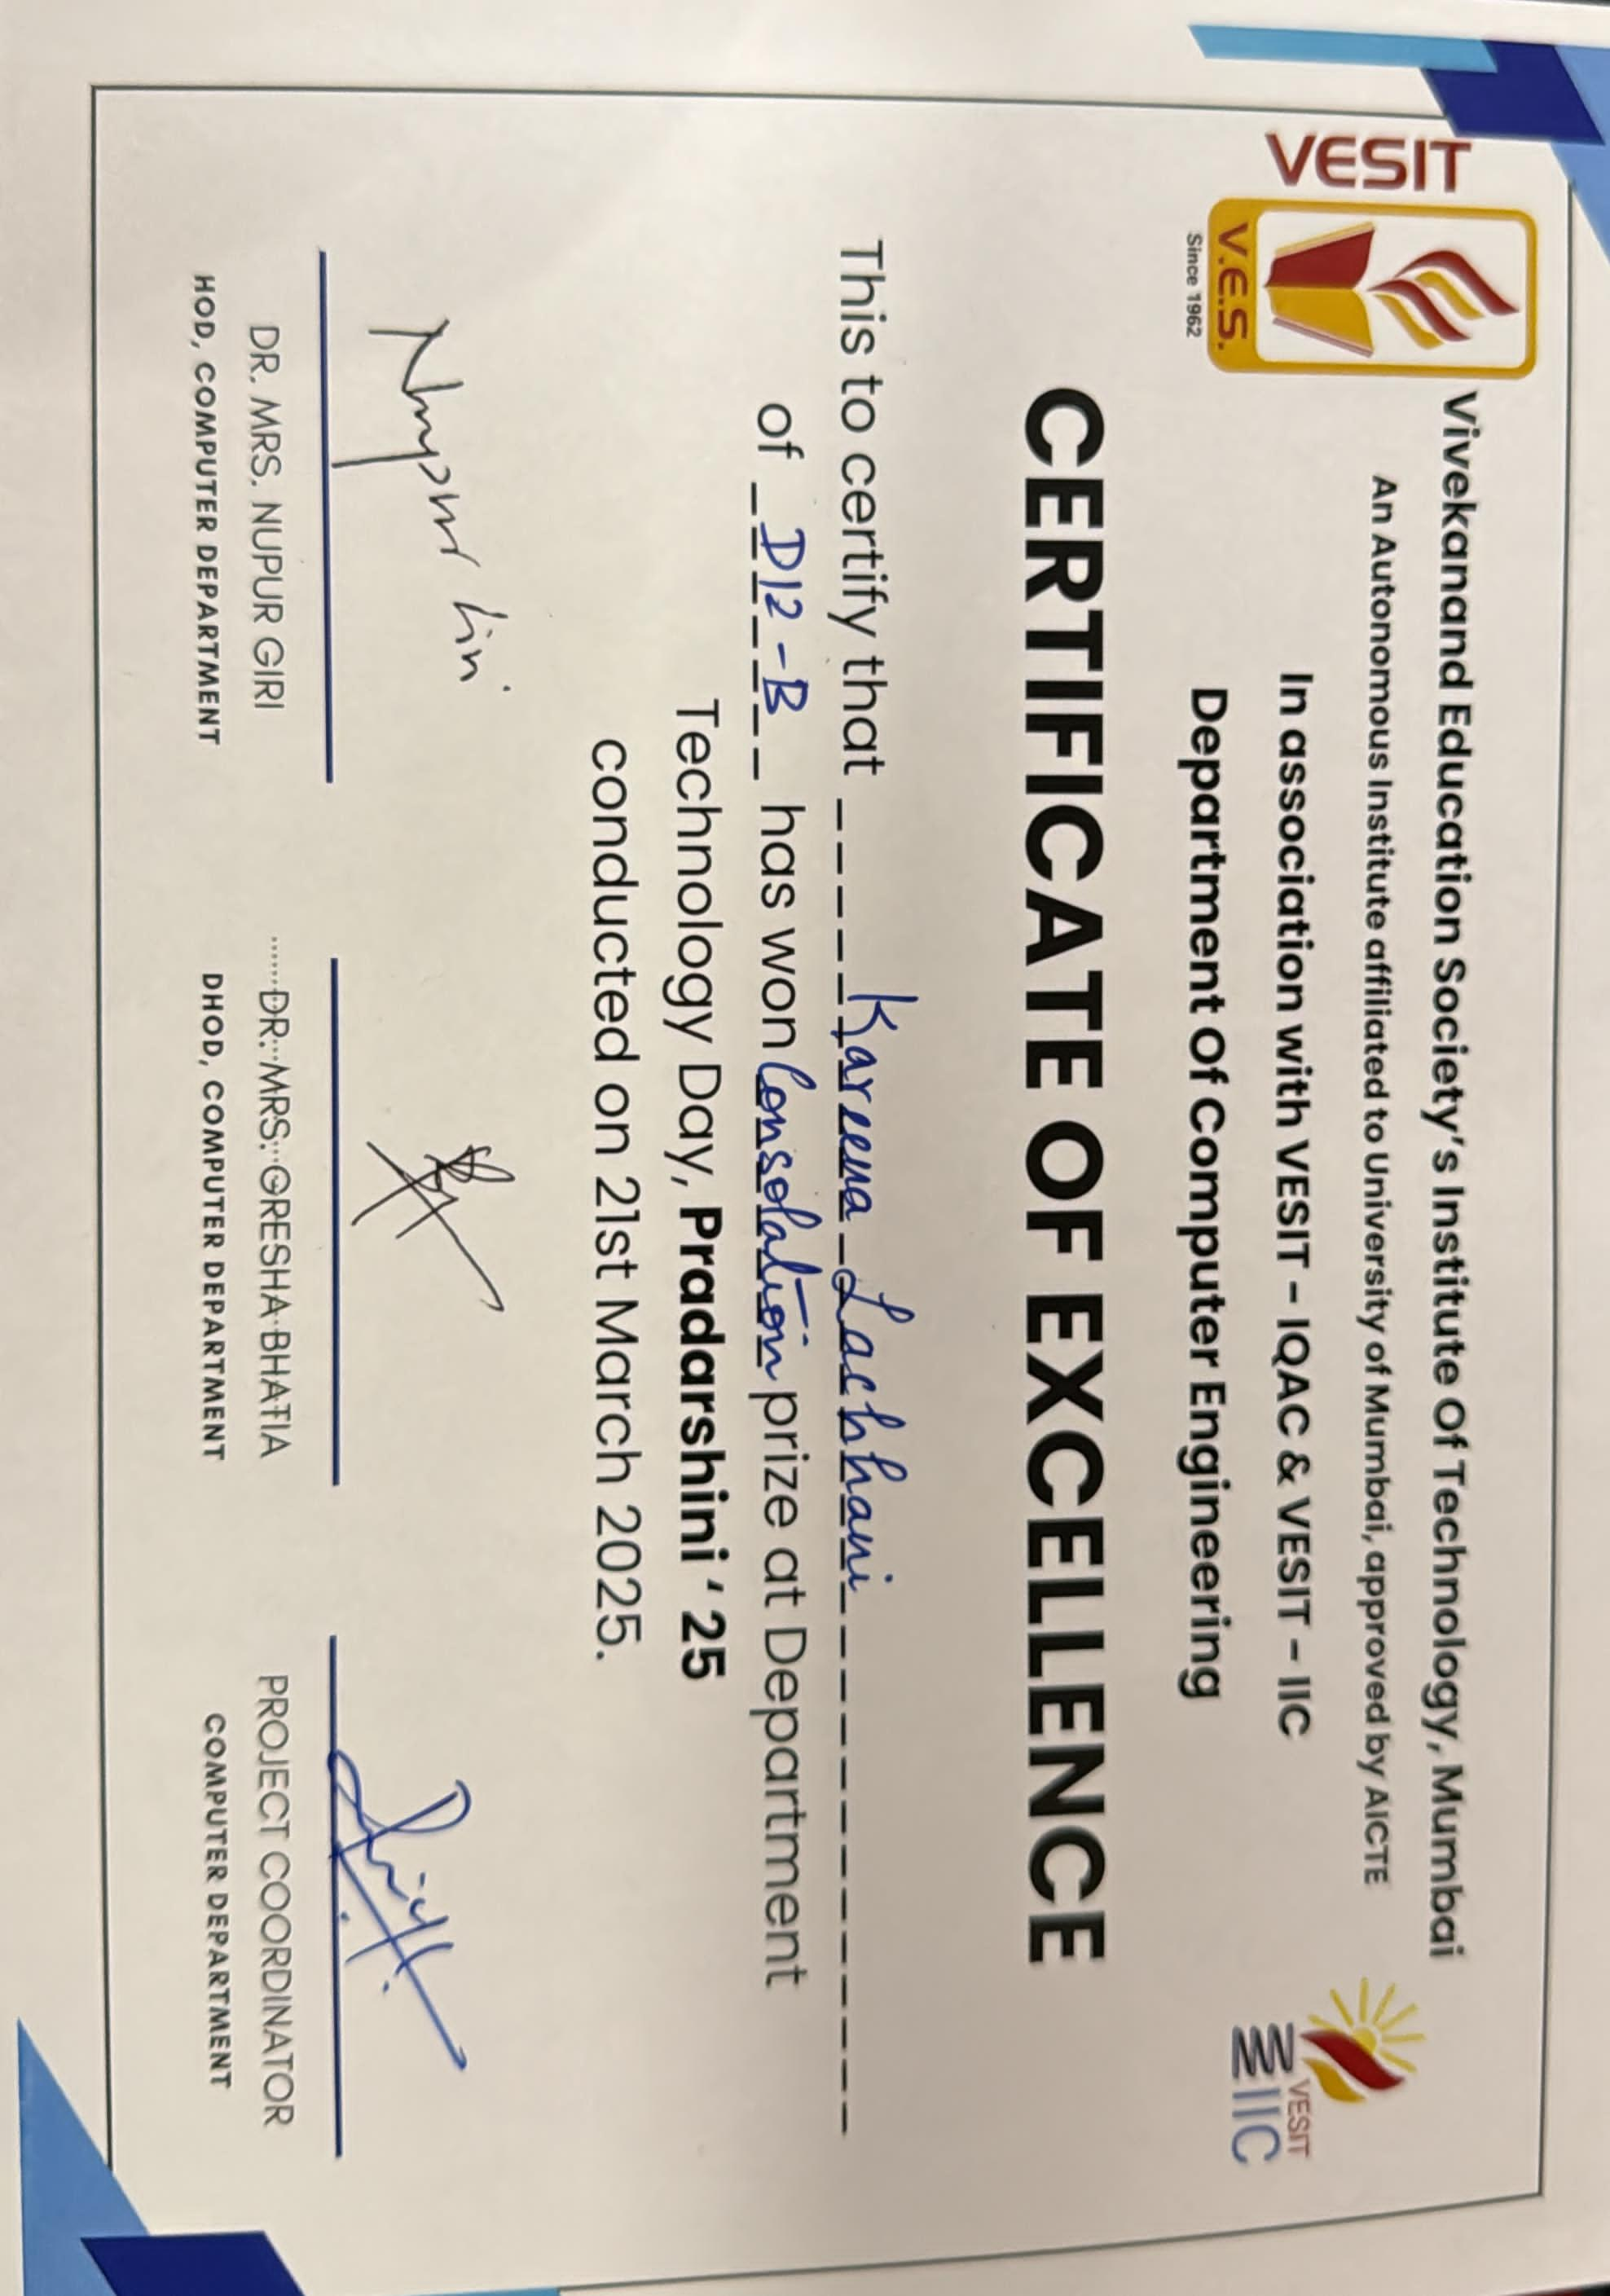 VESIT
V.E.S.
Since 1962
Vivekanand Education Society's Institute Of Technology, Mumbai
An Autonomous Institute affiliated to University of Mumbai, approved by AICTE
In association with VESIT - IQAC & VESIT - IIC
Department Of Computer Engineering
VESIT
IIC
CERTIFICATE OF EXCELLENCE
This to certify that Kareena Lachhani
of D12-B has won Consolation prize at Department
Technology Day, Pradarshini '25
conducted on 21st March 2025.
Nupur Giri
DR. MRS. NUPUR GIRI
HOD, COMPUTER DEPARTMENT
DR. MRS. GRESHA BHATIA
DHOD, COMPUTER DEPARTMENT
PROJECT COORDINATOR
COMPUTER DEPARTMENT